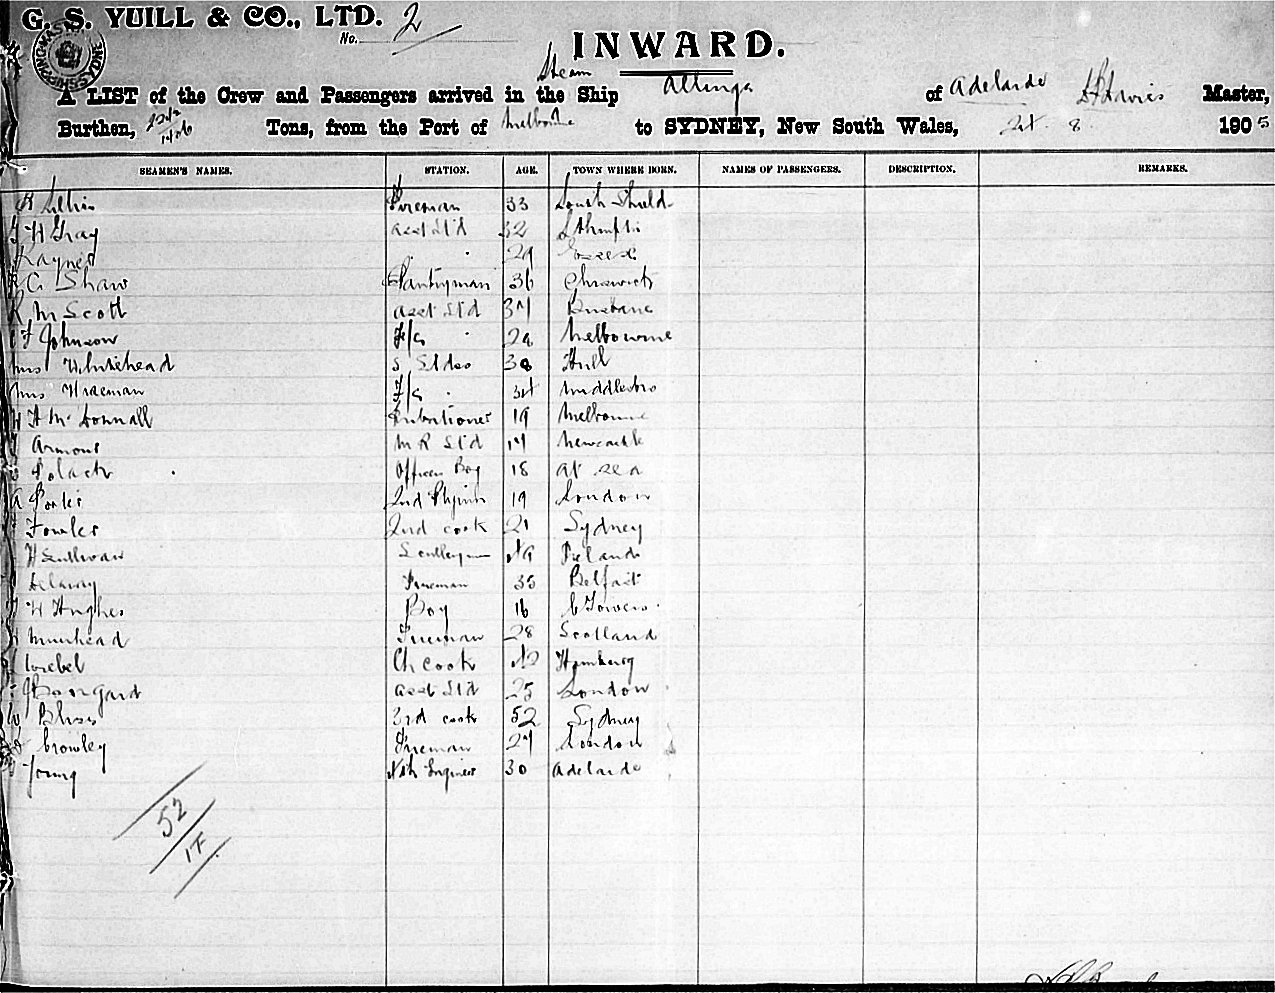 G. S. YUILL & CO., LTD.
No. 2
INWARD.
Steam
A LIST of the Crew and Passengers arrived in the Ship Allinga of Adelaide Davies Master,
Burthen, Tons, from the Port of Melbourne to SYDNEY, New South Wales, 8 1905
SEAMEN'S NAMES. STATION. AGE. TOWN WHERE BORN. NAMES OF PASSENGERS. DESCRIPTION. REMARKS.
Fireman 33 South Shields
H Gray asst Std 32 Sthmptn
Rayner " 29 Essex
C Shaw Pantryman 36
R M Scott asst Std 37 Brisbane
F Johnson F/C " 29 Melbourne
Mrs Whitehead S Stdss 38 Hull
Mrs F/C " Middlesbro
H A McDonnall 19 Melbourne
Armour M R Std 17 Newcastle
Polack Officers Boy 18 at sea
A Porter 2nd 19 London
Fowler 2nd cook 21 Sydney
H Sullivan Sculleryman 49 Ireland
Delaney Fireman 35 Belfast
H Hughes Boy 16 C Towers.
Muirhead Fireman 28 Scotland
Wrebel Ch cook 42 Hamburg
asst Std 25 London
W Bliss 3rd cook 52 Sydney
Crowley Fireman 27 London
Young 4th Engineer 30 Adelaide
52